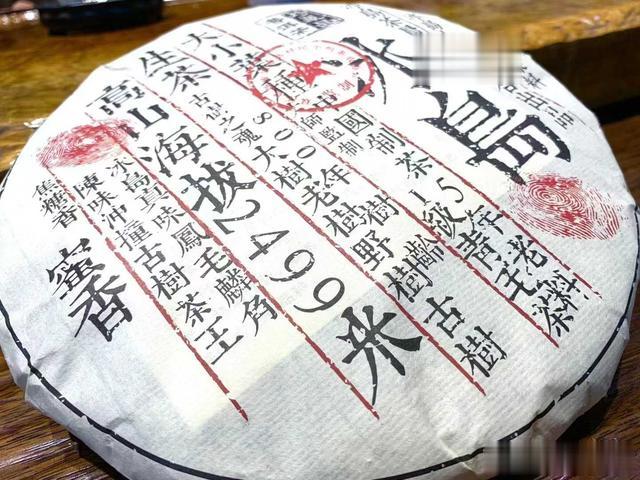 島
15年老料
國制茶1級青毛茶
800年樹齡古樹
大樹老樹野樹
監制
大小葉種
生茶
高山海拔2499米
冰島真味鳳毛麟角
陳味沖撞古樹茶王
焦糖香
蜜香